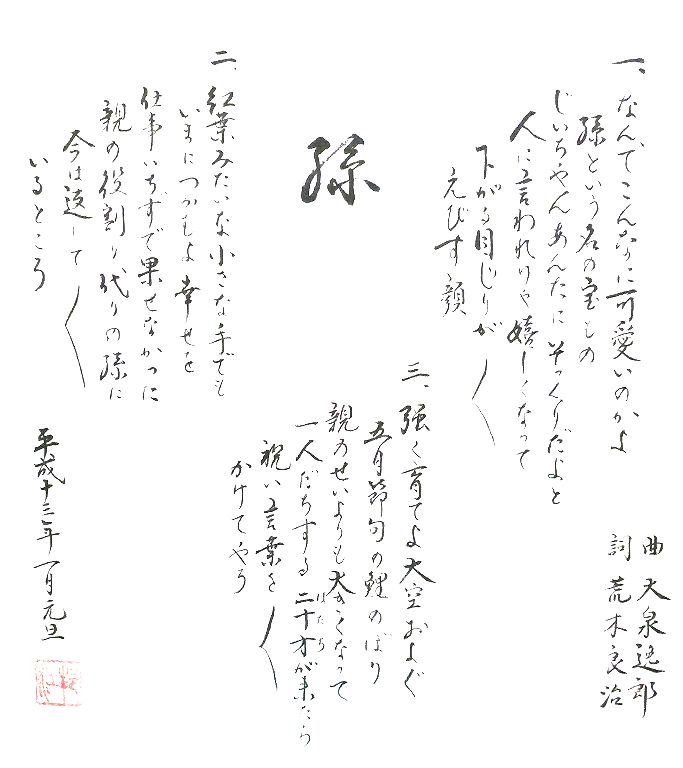 孫
一、なんでこんなに可愛いのかよ
孫という名の宝もの
じいちゃんあんたにそっくりだよと
人に言われりゃ嬉しくなって
下がる目じりが〱
えびす顔
曲 大泉逸郎
詞 荒木良治
二、紅葉みたいな小さな手でも
いまにつかむよ幸せを
仕事いちずで果せなかった
親の役割り代りの孫に
今は返して〱
いるところ
三、強く育てよ大空およぐ
五月節句の鯉のぼり
親のせいよりも大きくなって
一人だちする二十才が来たら
はたち
祝い言葉を〱
かけてやろう
平成十三年一月元旦